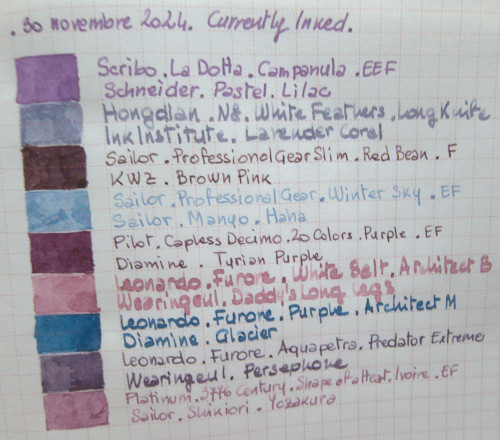 . 30 novembre 2024. Currently Inked.
Scribo. La Dotta. Campanula. EEF
Schneider. Pastel. Lilac
Hongdian. N8. White Feathers. Long Knife
Ink Institute. Lavender Coral
Sailor. Professional Gear Slim. Red Bean. F
KWZ. Brown Pink
Sailor. Professional Gear. Winter Sky. EF
Sailor. Manyo. Haha
Pilot. Capless Decimo. 20 Colors. Purple. EF
Diamine. Tyrian Purple
Leonardo. Furore. White Salt. Architect B
Wearingeul. Daddy's Long Legs
Leonardo. Furore. Purple. Architect M
Diamine. Glacier
Leonardo. Furore. Aquapetra. Predator Extreme
Wearingeul. Persephone
Platinum. 3776 Century. Shape of a Heart. Ivoire. EF
Sailor. Shikiori. Yozakura